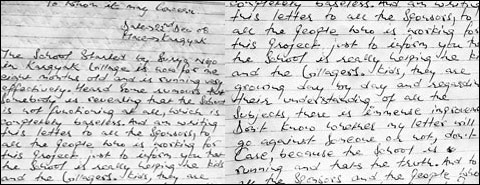 To whom it may concern
Dated 2nd Dec 08
The School Started by Surya
in Kargyak village is now for me
eight months old and is running very
effectively. Heard Some rumours that
Somebody is revealing that the School
is not functioning at all, which is
completely baseless. And am writing
this letter to all the Sponsors, to
all the people who is working for
this project, just to inform you that
the School is really helping the kids
and the villagers. kids, they are
completely baseless. And am writing
this letter to all the Sponsors, to
all the people who is working for
this project, just to inform you tha
the School is really helping the kid
and the villagers. kids, they are
growing day by day and regardin
their understanding of all the
Subjects, there is immense improveme
Don't know whether my letter will
go against Someone or not, don't
Case, because the School is
running and thats the truth. And to
all the Sponsors and the people who